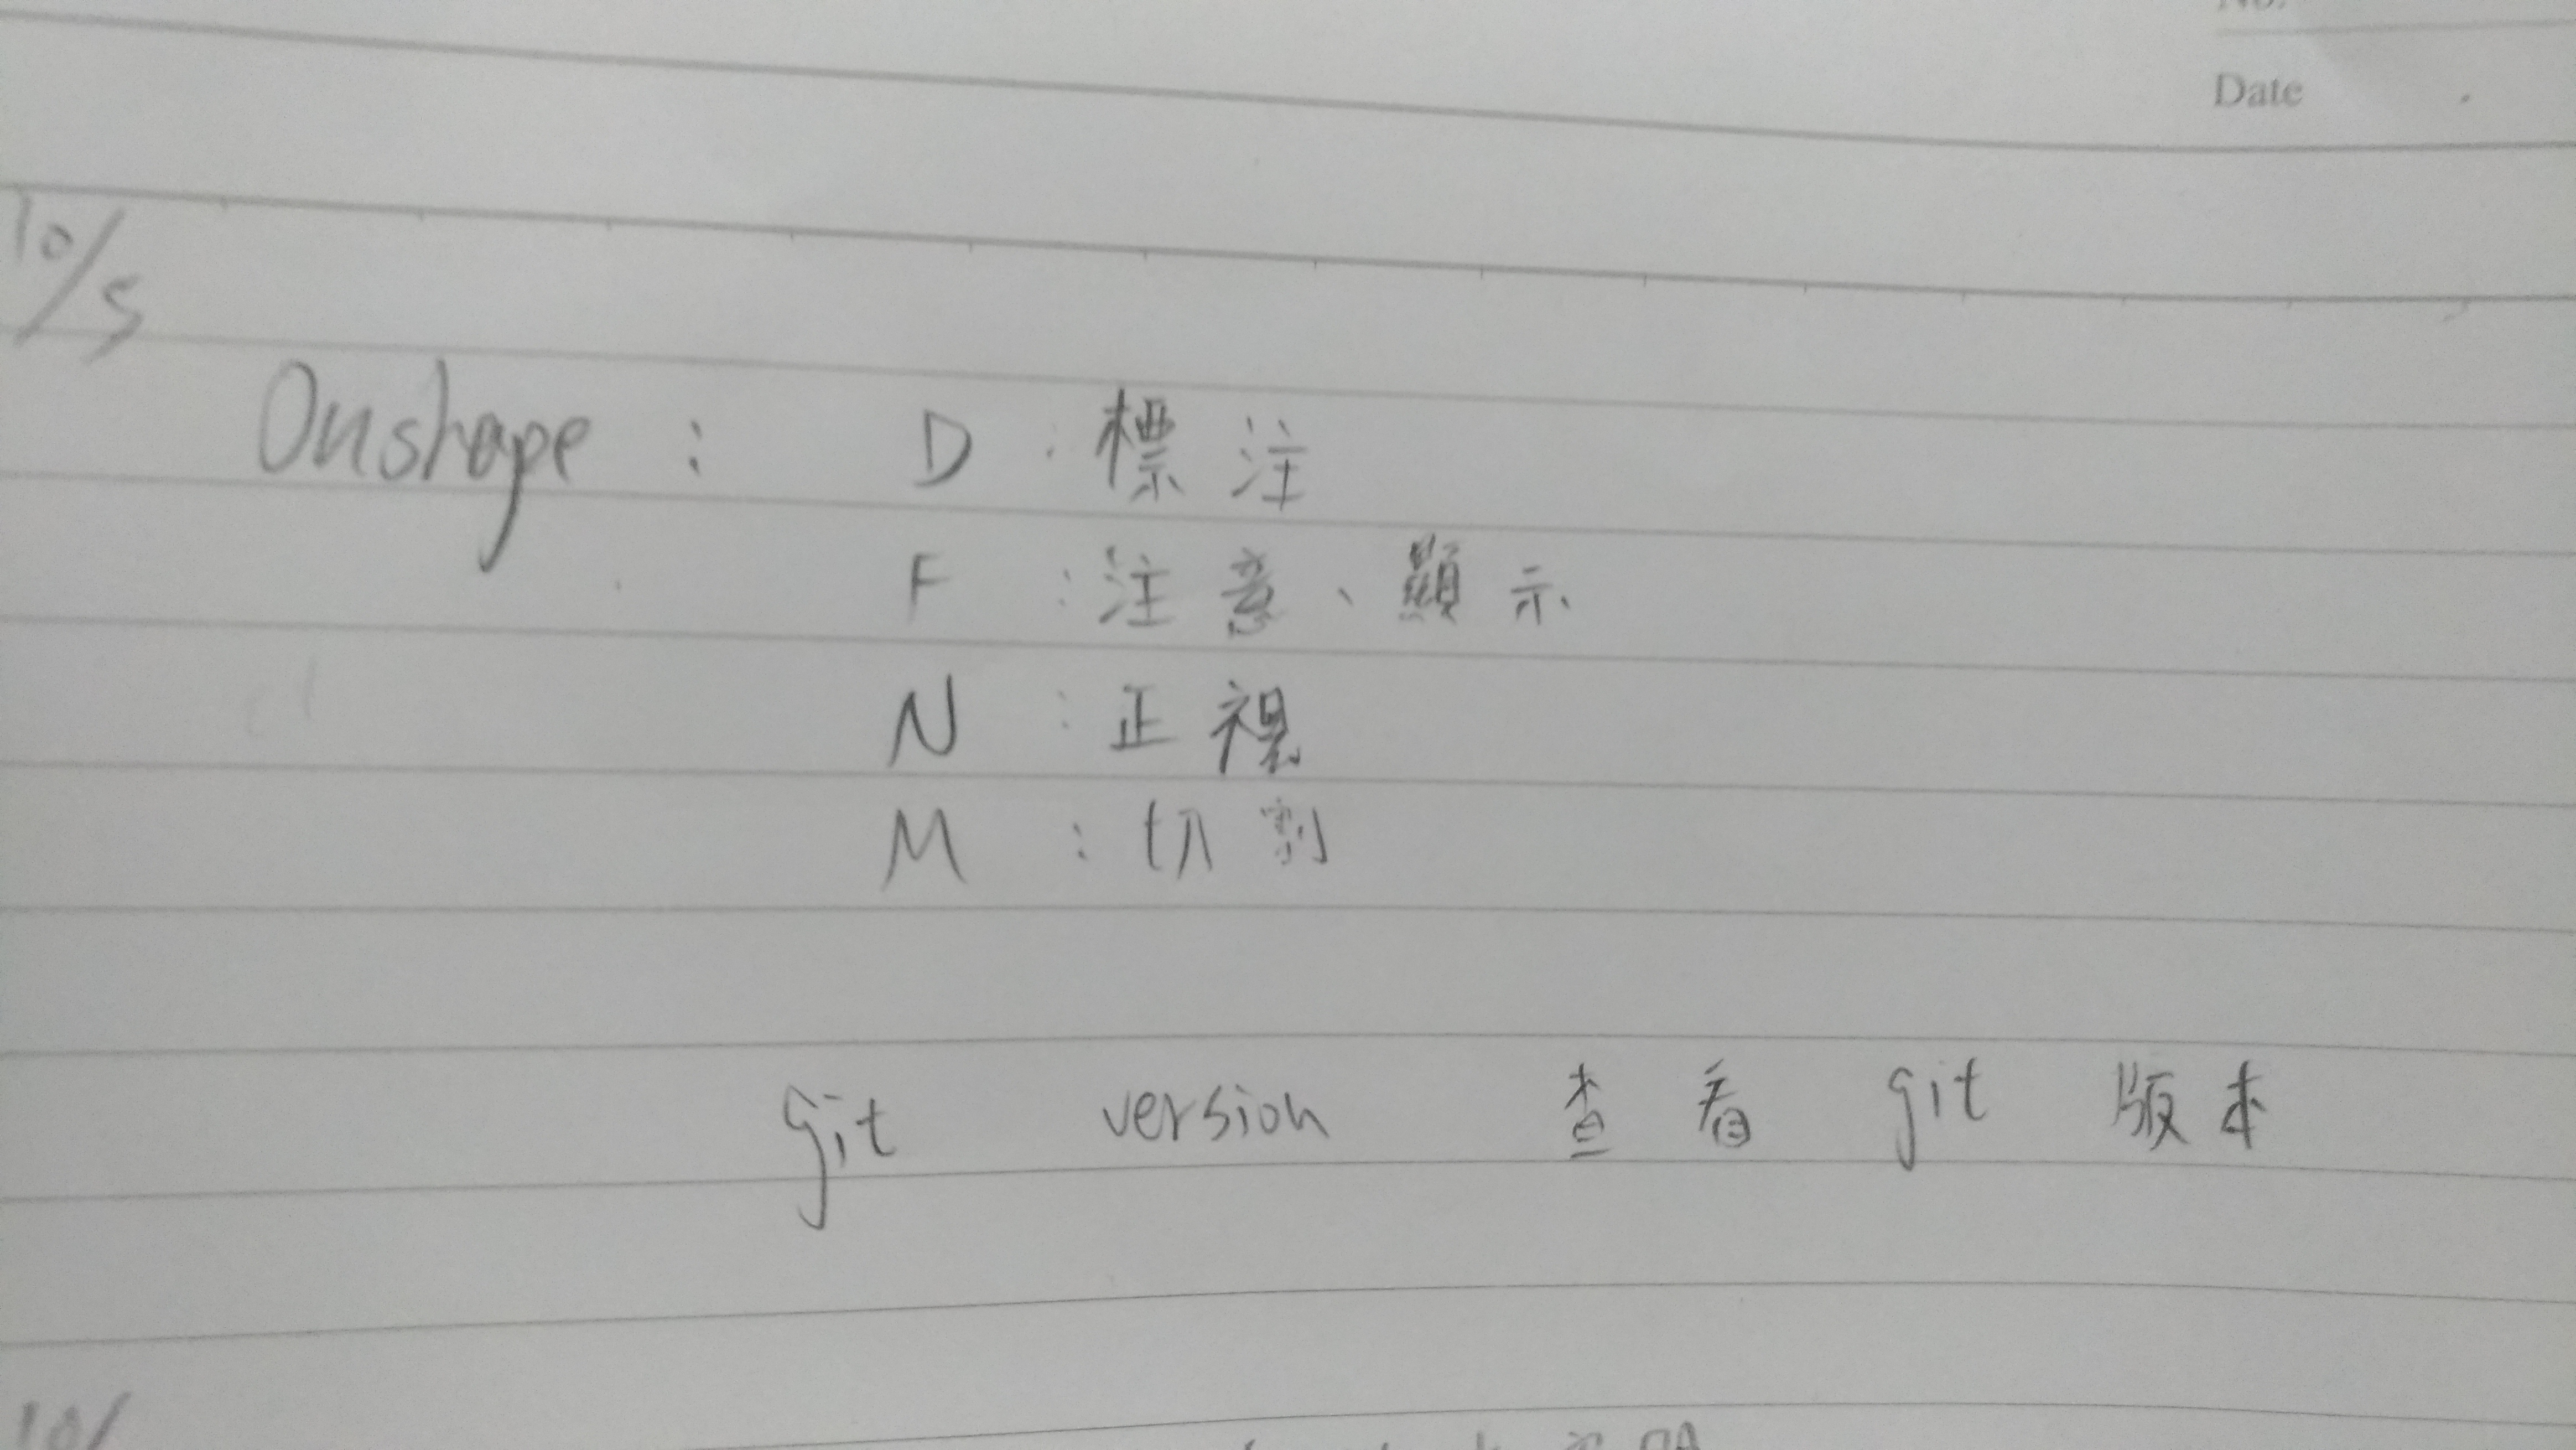 Date
10/5
Onshape : D : 標注
F : 注意、顯示
N : 正視
M : 切割
git version 查看 git 版本
10/